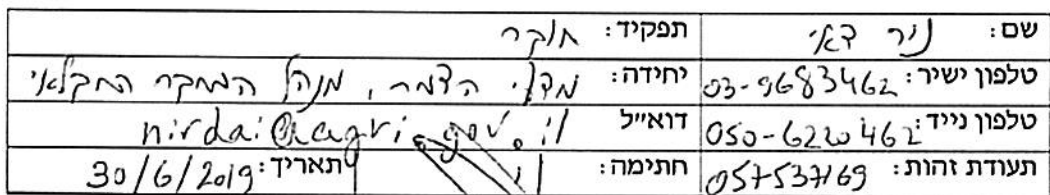 שם: ניר דאי תפקיד: חוקר
טלפון ישיר: 03-9683462 יחידה: מדעי הצמח, מנהל המחקר החקלאי
טלפון נייד: 050-6220462 דואייל nirdai@agri.gov.il
תעודת זהות: 057537169 חתימה: תאריך: 30/6/2019